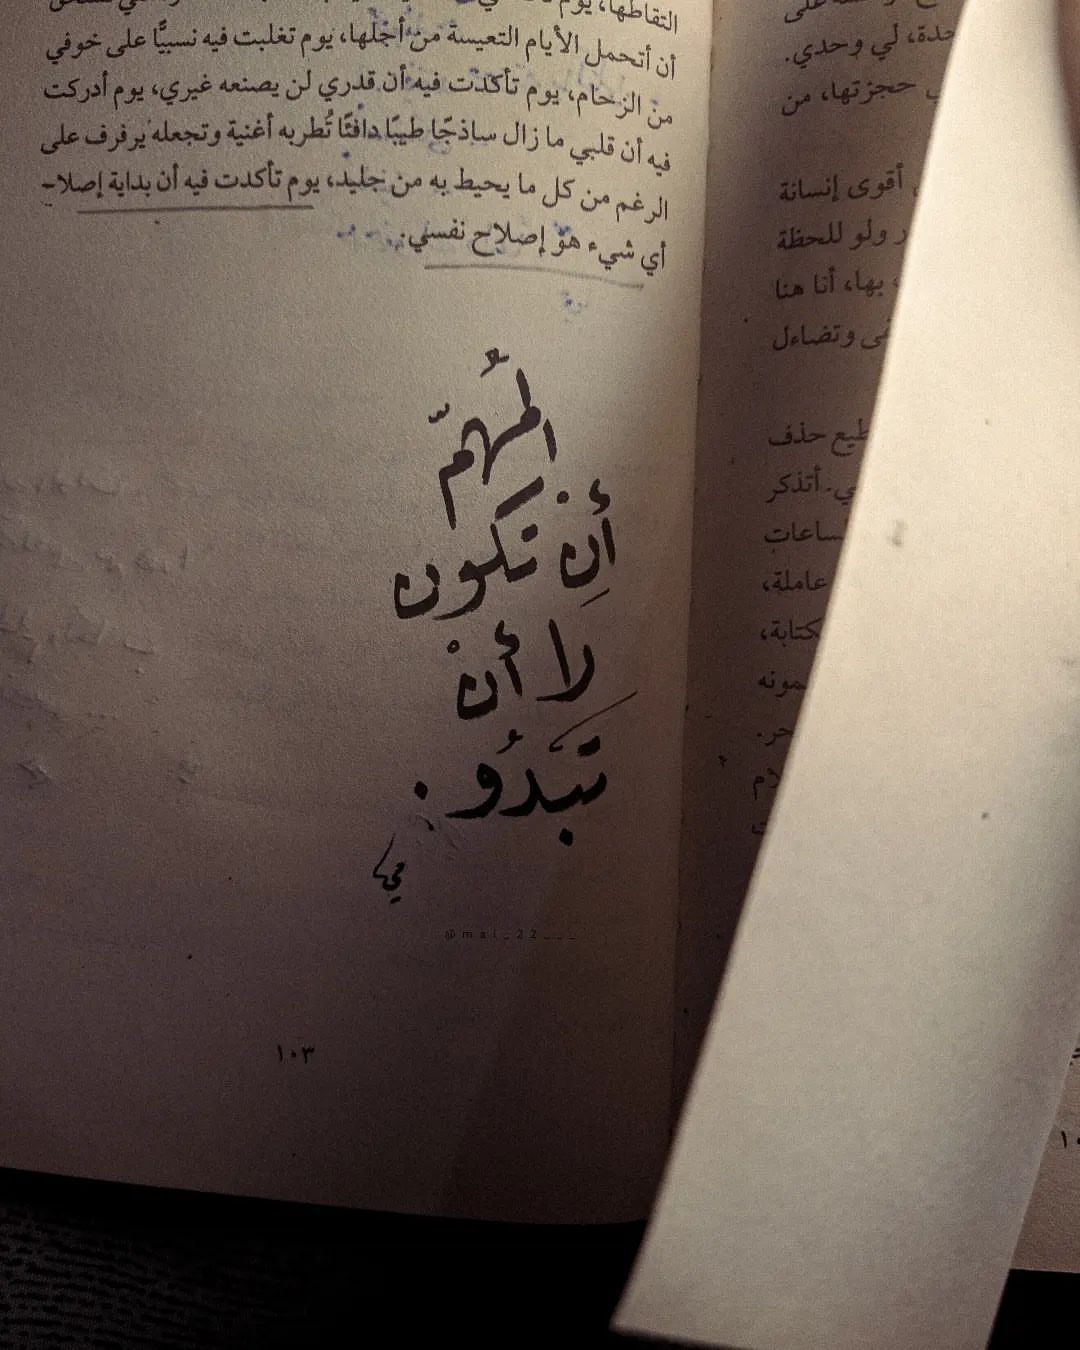 التقاطها، يوم
أن أتحمل الأيام التعيسة من أجلها، يوم تغلبت فيه نسبيًّا على خوفي
من الزحام، يوم تأكدت فيه أن قدري لن يصنعه غيري، يوم أدركت
فيه أن قلبي ما زال ساذجًا طيبًا دافئًا تُطربه أغنية وتجعله يرفرف على
الرغم من كل ما يحيط به من جليد، يوم تأكدت فيه أن بداية إصلاح
أي شيء هو إصلاح نفسي.
المُهمّ
أن تكون
لا أنْ
تَبْدُو.
مي
@mai_22___
١٠٣
على
لي وحدي.
حجزتها، من
أقوى إنسانة
ولو للحظة
بها، أنا هنا
وتضاءل
حذف
أتذكر
عاملة،